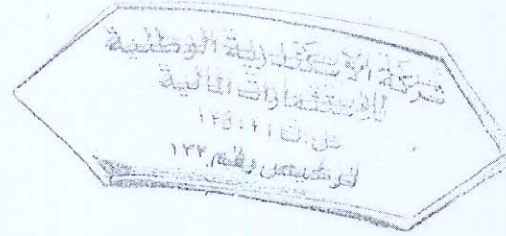 شركة الإسكندرية الوطنية
للإستثمارات المالية
ترخيص رقم ١٢٢